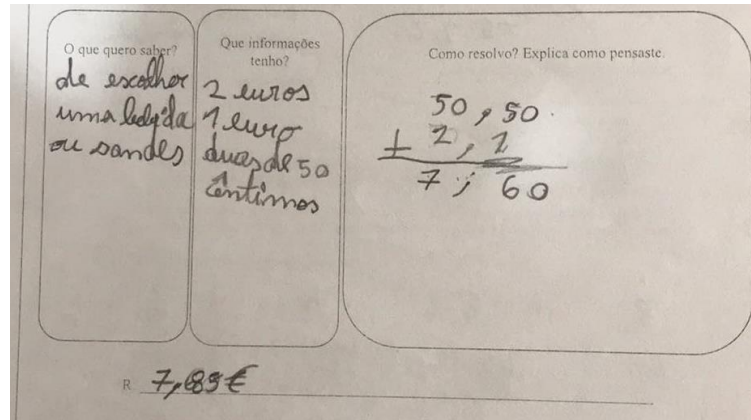 O que quero saber?
de escolher
uma bebida
ou sandes
Que informações
tenho?
2 euros
1 euro
duas de 50
cêntimos
Como resolvo? Explica como pensaste.
50,50
+ 2,1
7,60
R. 7,69€